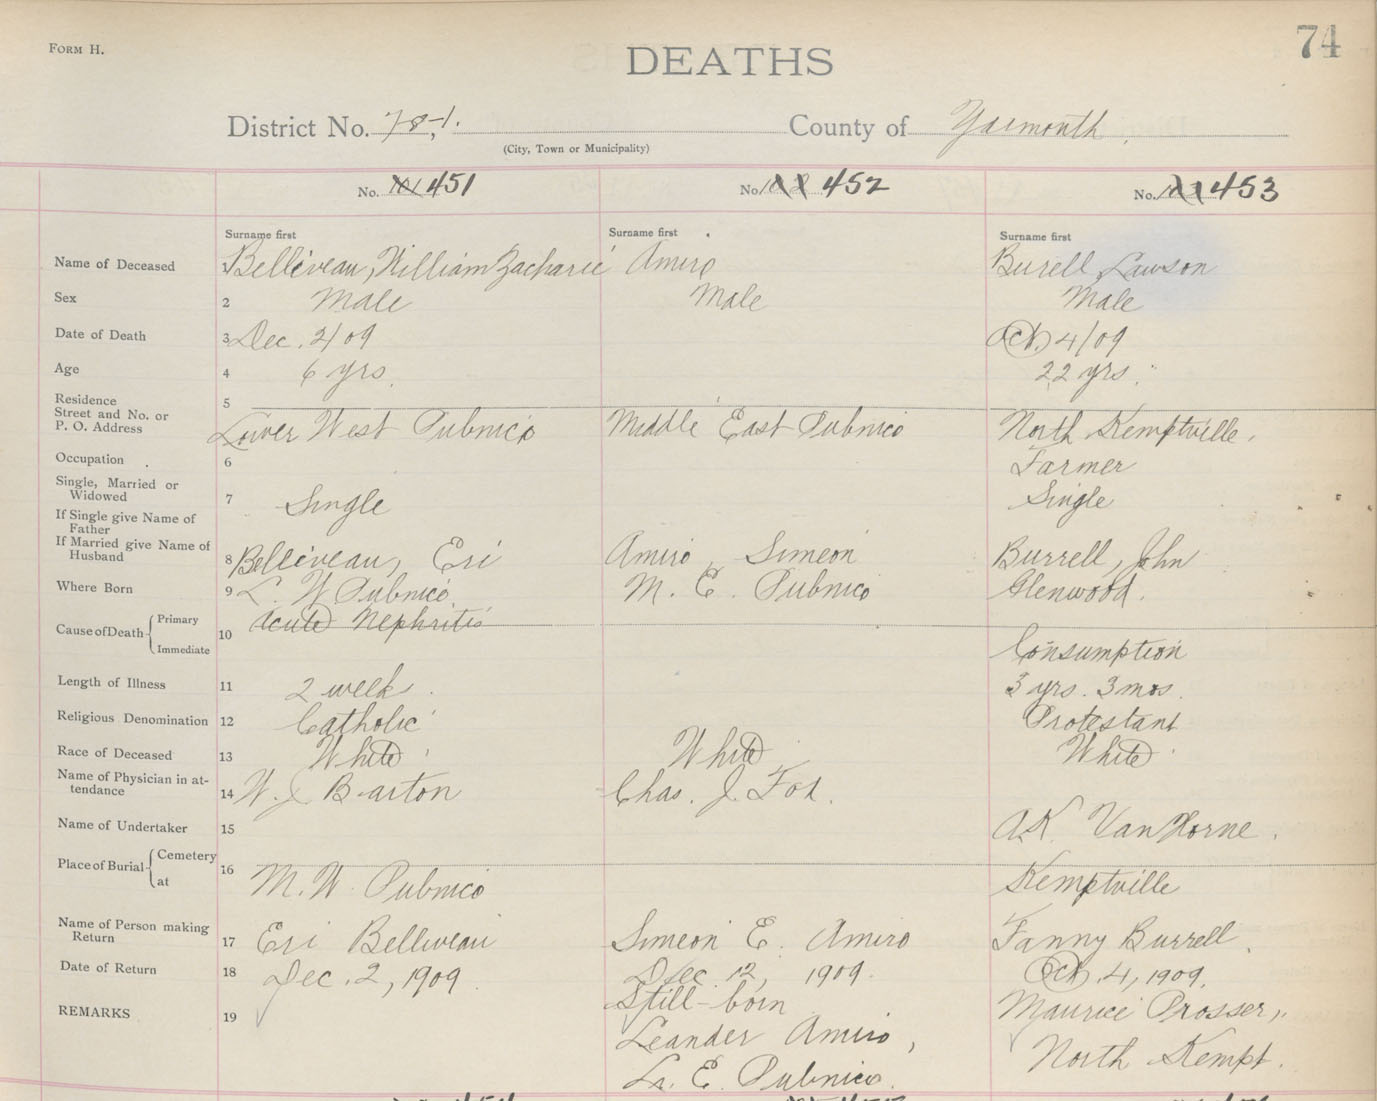 FORM H.
DEATHS
74
District No. 78-1. County of Yarmouth
(City, Town or Municipality)
No. 101 451
No. 102 452
No. 453
Surname first
Surname first
Surname first
Name of Deceased 1 Belliveau, William Zacharie Amiro Burell, Lawson
Sex 2 Male Male Male
Date of Death 3 Dec. 2/09 Oct. 4/09
Age 4 6 yrs. 22 yrs.
Residence
Street and No. or
P. O. Address
5 Lower West Pubnico Middle East Pubnico North Kemptville.
Occupation 6 Farmer
Single, Married or
Widowed
7 Single Single
If Single give Name of
Father
If Married give Name of
Husband
8 Belliveau, Esi Amiro, Simeon Burrell, John
Where Born 9 L. W Pubnico M. E. Pubnico Glenwood.
Cause of Death Primary
Immediate
10 Acute Nephritis Consumption
Length of Illness 11 2 weeks. 3 yrs. 3 mos.
Religious Denomination 12 Catholic Protestant
Race of Deceased 13 White White White
Name of Physician in at-
tendance
14 W. J Barton Chas. J. Fox.
Name of Undertaker 15 A.K. VanHorne.
Place of Burial Cemetery
at
16 M. W. Pubnico Kemptville
Name of Person making
Return
17 Esi Belliveau Simeon E. Amiro Fanny Burrell.
Date of Return 18 Dec. 2, 1909 Dec. 12, 1909. Oct. 4, 1909.
REMARKS 19 Still-born Maurice Prosser,
Leander Amiro, North Kempt.
Lr. E. Pubnico.